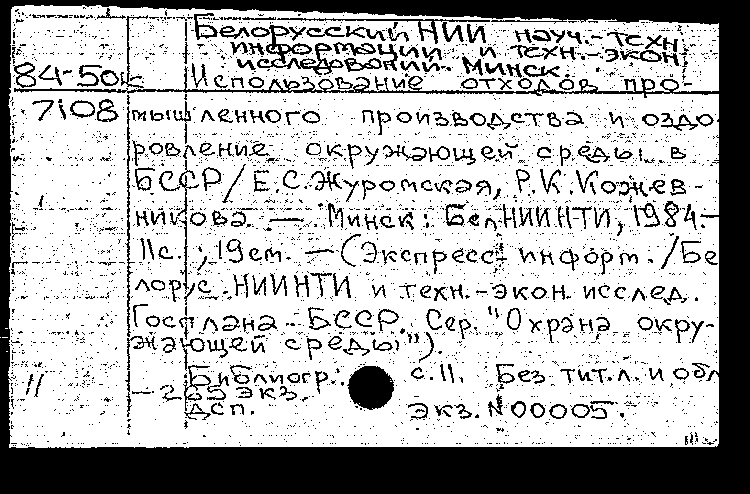 Белорусский НИИ науч.-техн.
информации и техн.-экон.
исследований. Минск.
84-50к Использование отходов про-
7108 мышленного производства и оздо
ровление окружающей среды в
БССР/Е.С.Журомская, Р.К.Кожев-
никова. — Минск: БелНИИНТИ, 1984.—
11с.; 19см. — (Экспресс-информ./Бе
лорус.НИИНТИ и техн.-экон. исслед.
Госплана БССР. Сер. "Охрана окру-
жающей среды").
11 Библиогр.: с.11. Без тит.л. и обл
— экз.
ДСП. экз. №00005.